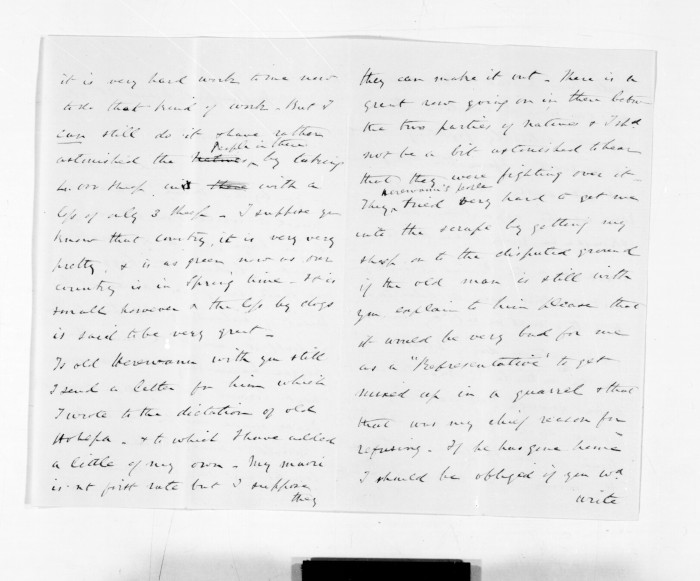 it is very hard work to me now
to do that kind of work - But I
can still do it & have rather
People in there
astonished the Natives, by taking
4,000 sheep, and there with a
loss of only 3 sheep - I suppose you
know that country, it is very very
pretty, & is as green now as our
country is in Spring time - It is
small however & the loss by dogs
is said to be very great -
Is old Herewanu with you still
I send a letter for him which
I wrote to the dictation of old
Hohepa - & to which I have added
a little of my own - My maori
is not first rate but I suppose
they
they can make it out - There is a
great row going on in there betn
the two parties of natives & I shd
not be a bit astonished to hear
that they were fighting over it -
Herewanu's people
They, tried very hard to get me
into the scrape by getting my
sheep on to the disputed ground
if the old man is still with
you explain to him please that
it would be very bad for me
as a "Representative" to get
mixed up in a quarrel & that
that was my chief reason for
refusing - If he has gone home
I should be obliged if you wd
write